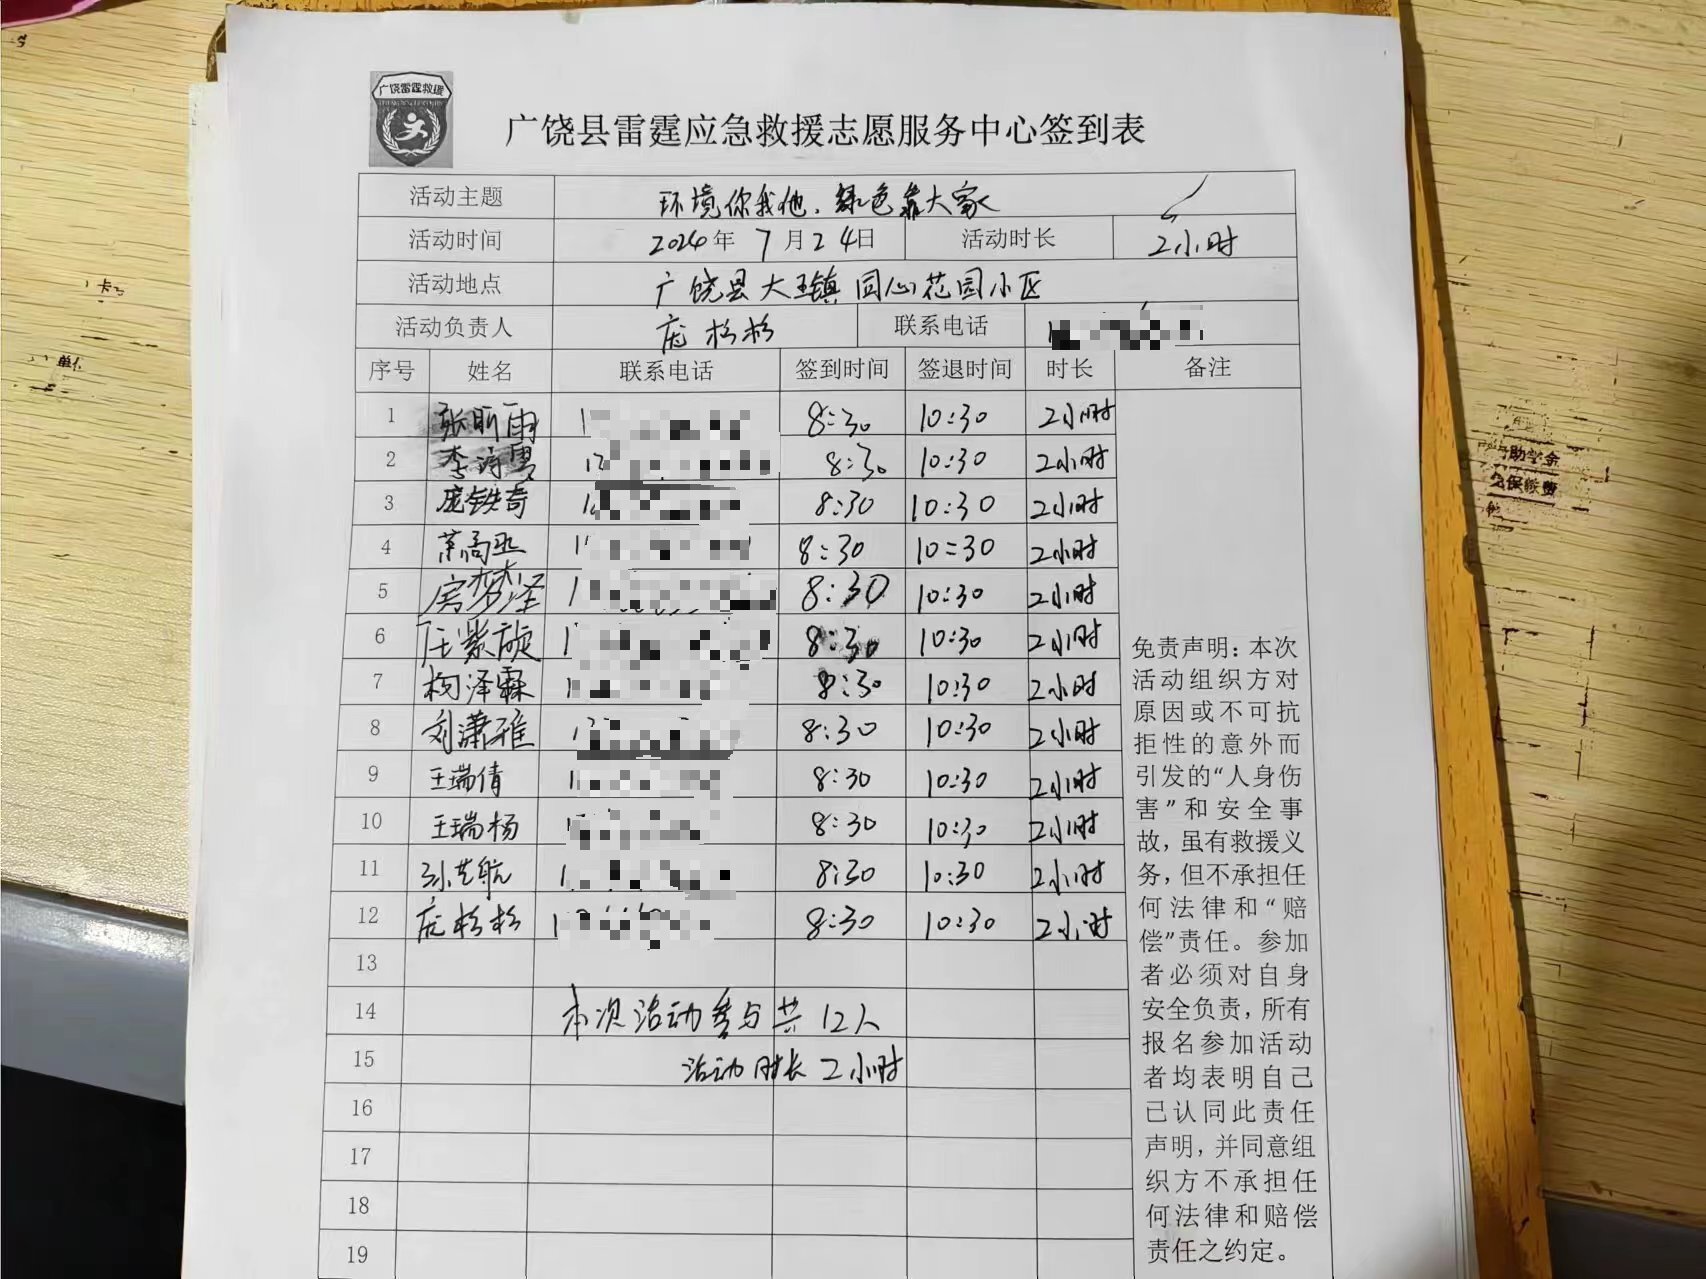 广饶雷霆救援
广饶县雷霆应急救援志愿服务中心签到表
活动主题 环境你我他，绿色靠大家
活动时间 2024年 7月24日 活动时长 2小时
活动地点 广饶县大王镇同心花园小区
活动负责人 庞杉杉 联系电话
序号 姓名 联系电话 签到时间 签退时间 时长 备注
1 张昕雨 8:30 10:30 2小时
2 李诗雪 8:30 10:30 2小时
3 庞铁奇 8:30 10:30 2小时
4 8:30 10:30 2小时
5 房梦泽 8:30 10:30 2小时
6 任紫旋 8:30 10:30 2小时
7 泽霖 8:30 10:30 2小时
8 刘潇雅 8:30 10:30 2小时
9 王瑞倩 8:30 10:30 2小时
10 王瑞杨 8:30 10:30 2小时
11 孙艺航 8:30 10:30 2小时
12 庞杉杉 8:30 10:30 2小时
13
14 本次活动参与共12人
15 活动时长2小时
16
17
18
19
免责声明：本次
活动组织方对
原因或不可抗
拒性的意外而
引发的“人身伤
害”和安全事
故，虽有救援义
务，但不承担任
何法律和“赔
偿”责任。参加
者必须对自身
安全负责，所有
报名参加活动
者均表明自己
已认同此责任
声明，并同意组
织方不承担任
何法律和赔偿
责任之约定。
助学金
保缴费